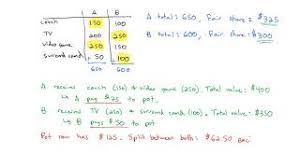 A B
couch 150 100
TV 200 250
Video game 250 150
Surround sound 50 100
650 600
A total: 650, Fair share = $325
B total: 600, Fair share = $300
A receives couch (150) + video game (250). Total value: $400
↳ A pays $75 to pot.
B receives TV (250) + surround sound (100). Total value: $350
↳ B pays $50 to pot.
Pot now has $125. Split between both: $62.50 eac